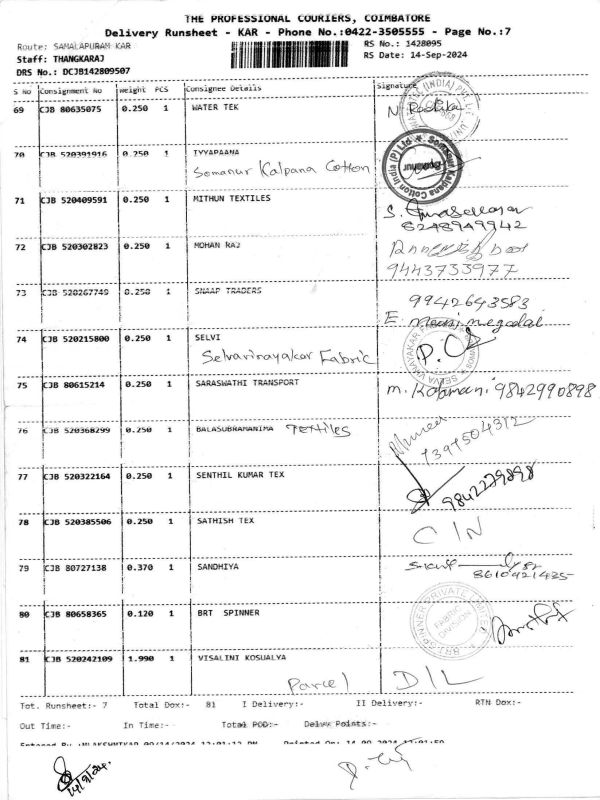 THE PROFESSIONAL COURIERS, COIMBATORE
Delivery Runsheet - KAR - Phone No.:0422-3505555 - Page No.:7
Route: SAMALAPURAM KAR
RS No.: 1428095
Staff: THANGKARAJ
RS Date: 14-Sep-2024
DRS No.: DCJB142809507
S No Consignment No Weight PCS Consignee Details Signature
69 CJB 80635075 0.250 1 WATER TEK N. Radhika
70 CJB 520391916 0.250 1 IYYAPAANA
Somanur Kalpana Cotton
Somanur Kalpana Cotton India (P) Ltd
Somanur
71 CJB 520409591 0.250 1 MITHUN TEXTILES
8248949942
72 CJB 520302823 0.250 1 MOHAN RAJ
9443733977
73 CJB 520267749 0.250 1 SNAAP TRADERS 9942643583
74 CJB 520215800 0.250 1 SELVI
Selvavinayakar Fabric
75 CJB 80615214 0.250 1 SARASWATHI TRANSPORT 9842990898
76 CJB 520368299 0.250 1 BALASUBRAMANIMA Textiles
7397504372
77 CJB 520322164 0.250 1 SENTHIL KUMAR TEX
9842279898
78 CJB 520385506 0.250 1 SATHISH TEX C/N
79 CJB 80727138 0.370 1 SANDHIYA
8610921435
80 CJB 80658365 0.120 1 BRT SPINNER
BRT SPINNER PRIVATE LIMITED
FABRIC DIVISION
81 CJB 520242109 1.990 1 VISALINI KOSUALYA
Parcel D/L
Tot. Runsheet:- 7 Total Dox:- 81 I Delivery:- II Delivery:- RTN Dox:-
Out Time:- In Time:- Total POD:- Delay Points:-
14/9/24.